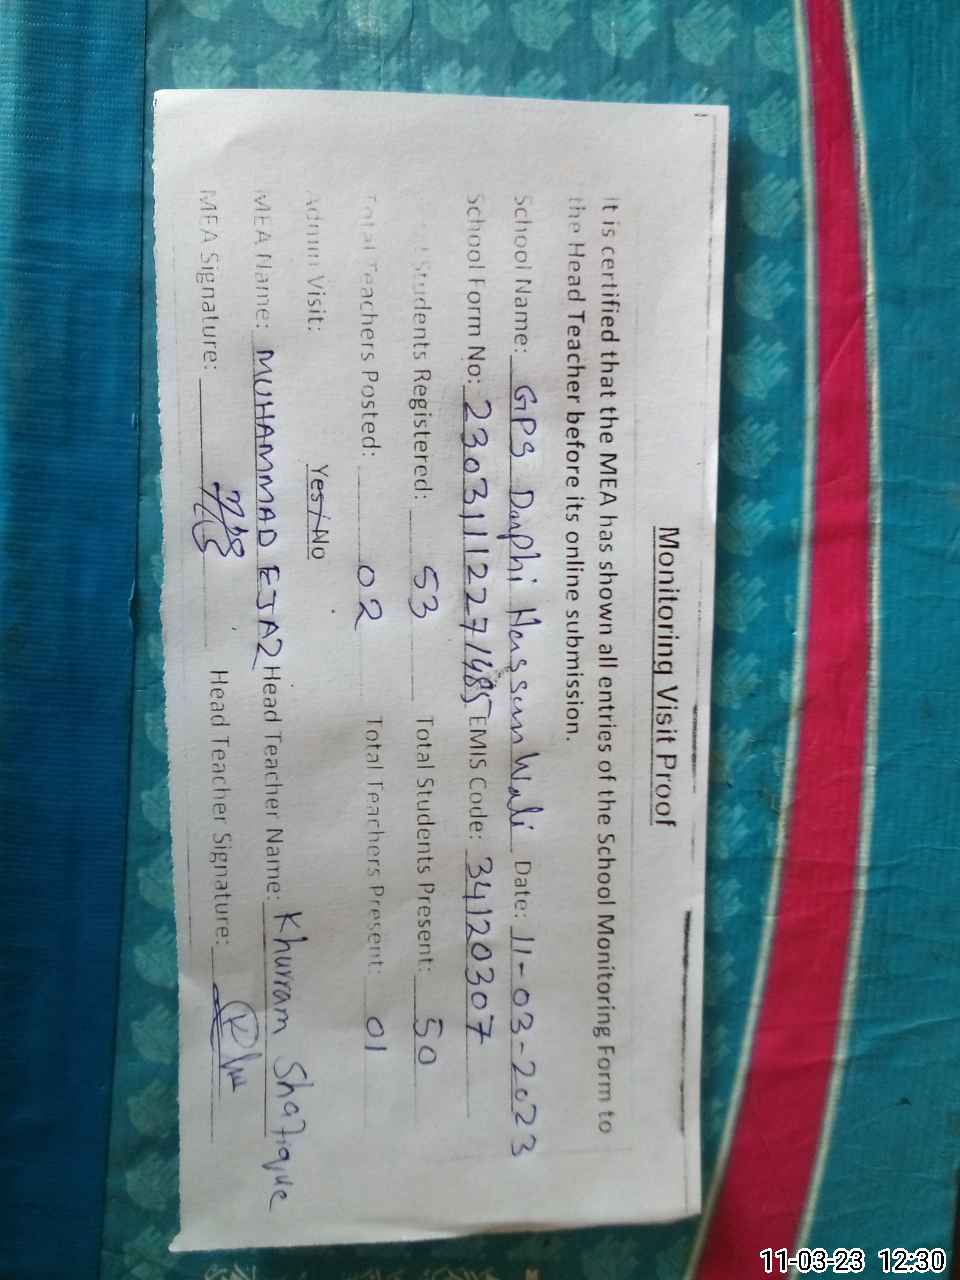 Monitoring Visit Proof
It is certified that the MEA has shown all entries of the School Monitoring Form to
the Head Teacher before its online submission.
School Name: GPS Darphi Hassan Wali Date: 11-03-2023
School Form No: 230311122271485 EMIS Code: 34120307
Students Registered: 53 Total Students Present: 50
Total Teachers Posted: 02 Total Teachers Present: 01
Admin Visit: Yes/No
MEA Name: MUHAMMAD EJAZ Head Teacher Name: Khurram Shafique
MEA Signature: Head Teacher Signature:
11-03-23 12:30